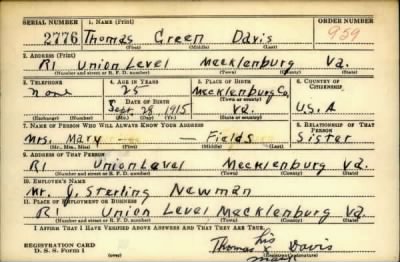 SERIAL NUMBER 1. NAME (Print) ORDER NUMBER
2776 Thomas Green Davis 959
(First) (Middle) (Last)
2. ADDRESS (Print)
R1 Union Level Mecklenburg Va.
(Number and street or R. F. D. number) (Town) (County) (State)
3. TELEPHONE 4. AGE IN YEARS 5. PLACE OF BIRTH 6. COUNTRY OF CITIZENSHIP
None 25 Mecklenburg Co,
DATE OF BIRTH (Town or county)
Sept. 28, 1915 Va. U.S.A
(Exchange) (Number) (Mo.) (Day) (Yr.) (State or country)
7. NAME OF PERSON WHO WILL ALWAYS KNOW YOUR ADDRESS 8. RELATIONSHIP OF THAT PERSON
Mrs. Mary — Fields Sister
(Mr., Mrs., Miss) (First) (Middle) (Last)
9. ADDRESS OF THAT PERSON
R1 Union Level Mecklenburg Va.
(Number and street or R. F. D. number) (Town) (County) (State)
10. EMPLOYER'S NAME
Mr. J. Sterling Newman
11. PLACE OF EMPLOYMENT OR BUSINESS
R1 Union Level Macklenburg Va.
(Number and street or R. F. D. number) (Town) (County) (State)
I AFFIRM THAT I HAVE VERIFIED ABOVE ANSWERS AND THAT THEY ARE TRUE.
his
REGISTRATION CARD Thomas x Davis
D. S. S. Form 1 (Registrant's signature)
mark